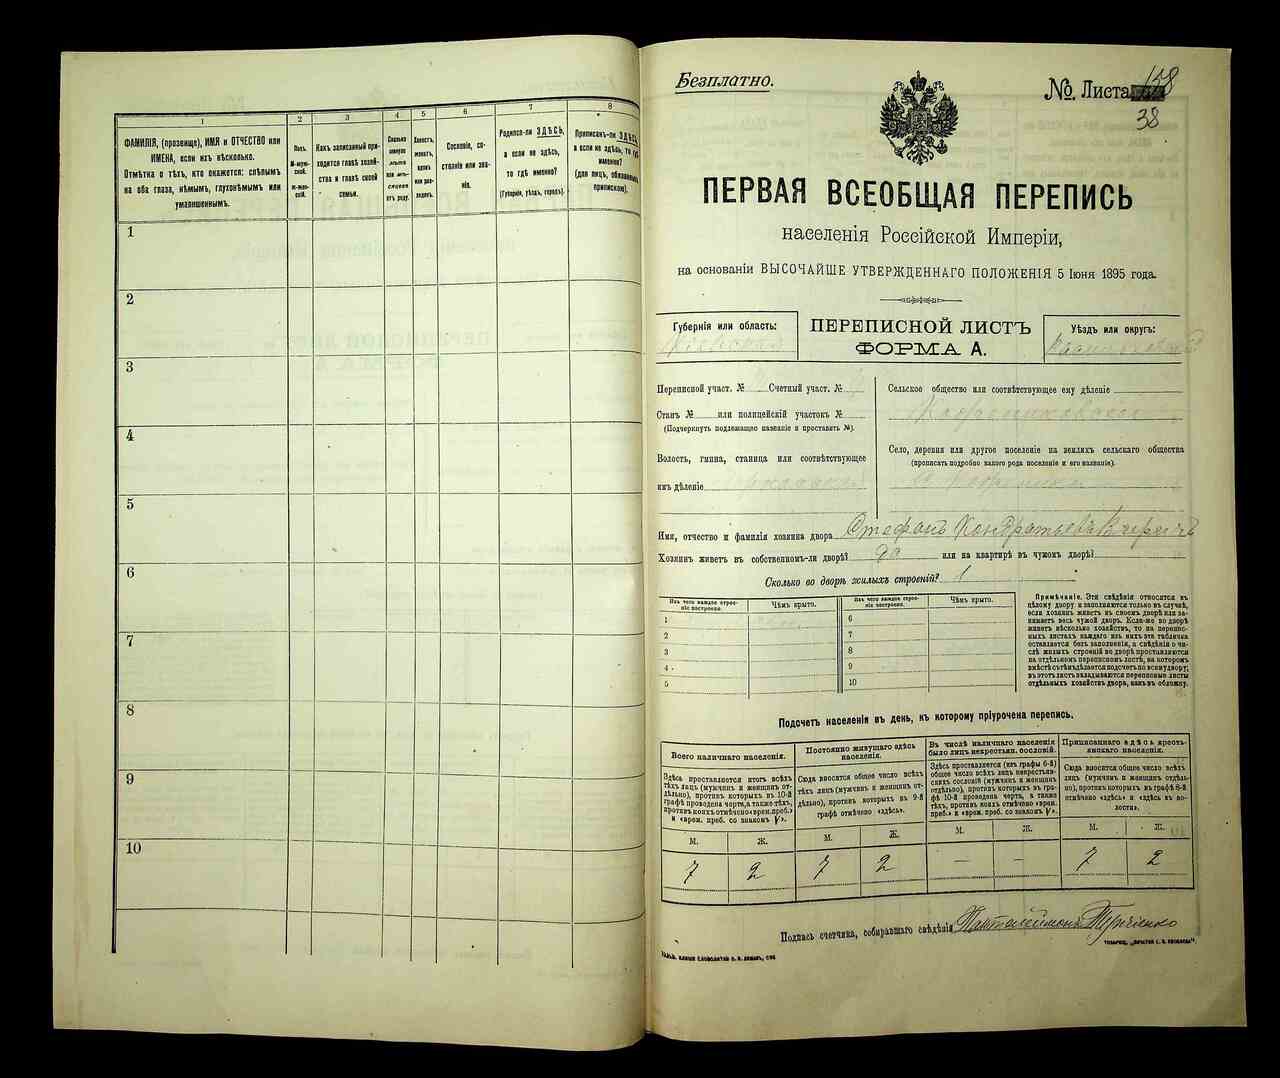 1
2
3
4
5
6
7
8
ФАМИЛІЯ, (прозвище), ИМЯ и ОТЧЕСТВО или
ИМЕНА, если ихъ нѣсколько.
Отмѣтка о тѣхъ, кто окажется: слѣпымъ
на оба глаза, нѣмымъ, глухонѣмымъ или
умалишеннымъ.
Полъ.
М-муж-
ской.
ж-жен-
скій.
Какъ записанный при-
ходится главѣ хозяй-
ства и главѣ своей
семьи.
Сколько
минуло
лѣтъ
или мѣ-
сяцевъ
отъ роду.
Холостъ,
женатъ,
вдовъ
или раз-
веденъ.
Сословіе, со-
стояніе или зва-
ніе.
Родился-ли ЗДѢСЬ,
а если не здѣсь,
то гдѣ именно?
(Губернія, уѣздъ, городъ).
Приписанъ-ли ЗДѢСЬ,
а если не здѣсь, то гдѣ
именно?
(для лицъ, обязанныхъ
припискою).
1
2
3
4
5
6
7
8
9
10
Безплатно.
№ Листа 158
38
ПЕРВАЯ ВСЕОБЩАЯ ПЕРЕПИСЬ
населенія Россійской Имперіи,
на основаніи ВЫСОЧАЙШЕ УТВЕРЖДЕННАГО ПОЛОЖЕНІЯ 5 Іюня 1895 года.
Губернія или область:
Кіевская
ПЕРЕПИСНОЙ ЛИСТЪ
ФОРМА А.
Уѣздъ или округъ:
Переписной участ. № Счетный участ. №
Станъ № или полицейскій участокъ №
(Подчеркнуть подлежащее названіе и проставить №).
Волость, гмина, станица или соотвѣтствующее
имъ дѣленіе
Сельское общество или соотвѣтствующее ему дѣленіе
Село, деревня или другое поселеніе на земляхъ сельскаго общества
(прописать подробно какого рода поселеніе и его названіе).
Имя, отчество и фамилія хозяина двора Стефанъ Кондратьевъ
Хозяинъ живетъ въ собственномъ-ли дворѣ? да или на квартирѣ въ чужомъ дворѣ?
Сколько во дворѣ жилыхъ строеній? 1
Изъ чего каждое строе-
ніе построено.
Чѣмъ крыто.
Изъ чего каждое строе-
ніе построено.
Чѣмъ крыто.
1
2
3
4
5
6
7
8
9
10
Примѣчаніе. Эти свѣдѣнія относятся къ
цѣлому двору и заполняются только въ случаѣ,
если хозяинъ живетъ въ своемъ дворѣ или за-
нимаетъ весь чужой дворъ. Если-же во дворѣ
живетъ нѣсколько хозяйствъ, то на перепис-
ныхъ листахъ каждаго изъ нихъ эта табличка
оставляется безъ заполненія, а свѣдѣнія о чи-
слѣ жилыхъ строеній во дворѣ проставляются
на отдѣльномъ переписномъ листѣ, на которомъ
вмѣстѣ съ тѣмъ дѣлается подсчетъ по всему двору;
въ этотъ листъ вкладываются переписные листы
отдѣльныхъ хозяйствъ двора, какъ въ обложку.
Подсчетъ населенія въ день, къ которому пріурочена перепись.
Всего наличнаго населенія.
Постоянно живущаго здѣсь
населенія.
Въ числѣ наличнаго населенія
было лицъ некрестьян. сословій.
Приписаннаго здѣсь кресть-
янскаго населенія.
Здѣсь проставляется итогъ всѣхъ
тѣхъ лицъ (мужчинъ и женщинъ от-
дѣльно), противъ которыхъ въ 10-й
графѣ проведена черта, а также тѣхъ,
противъ коихъ отмѣчено «врем. преб.»
и «врем. преб. со знакомъ V».
Сюда вносится общее число всѣхъ
тѣхъ лицъ (мужчинъ и женщинъ от-
дѣльно), противъ которыхъ въ 9-й
графѣ отмѣчено «здѣсь».
Здѣсь проставляется (изъ графы 6-й)
общее число всѣхъ лицъ некрестьян-
скихъ сословій (мужчинъ и женщинъ
отдѣльно), противъ которыхъ въ гра-
фѣ 10-й проведена черта, а также
тѣхъ, противъ коихъ отмѣчено «врем.
преб.» и «врем. преб. со знакомъ V».
Сюда вносится общее число всѣхъ
лицъ (мужчинъ и женщинъ отдѣль-
но), противъ которыхъ въ графѣ 8-й
отмѣчено «здѣсь» и «здѣсь въ во-
лости».
М. Ж. М. Ж. М. Ж. М. Ж.
7 2 7 2 — — 7 2
Подпись счетчика, собиравшаго свѣдѣнія Пантелеймонъ